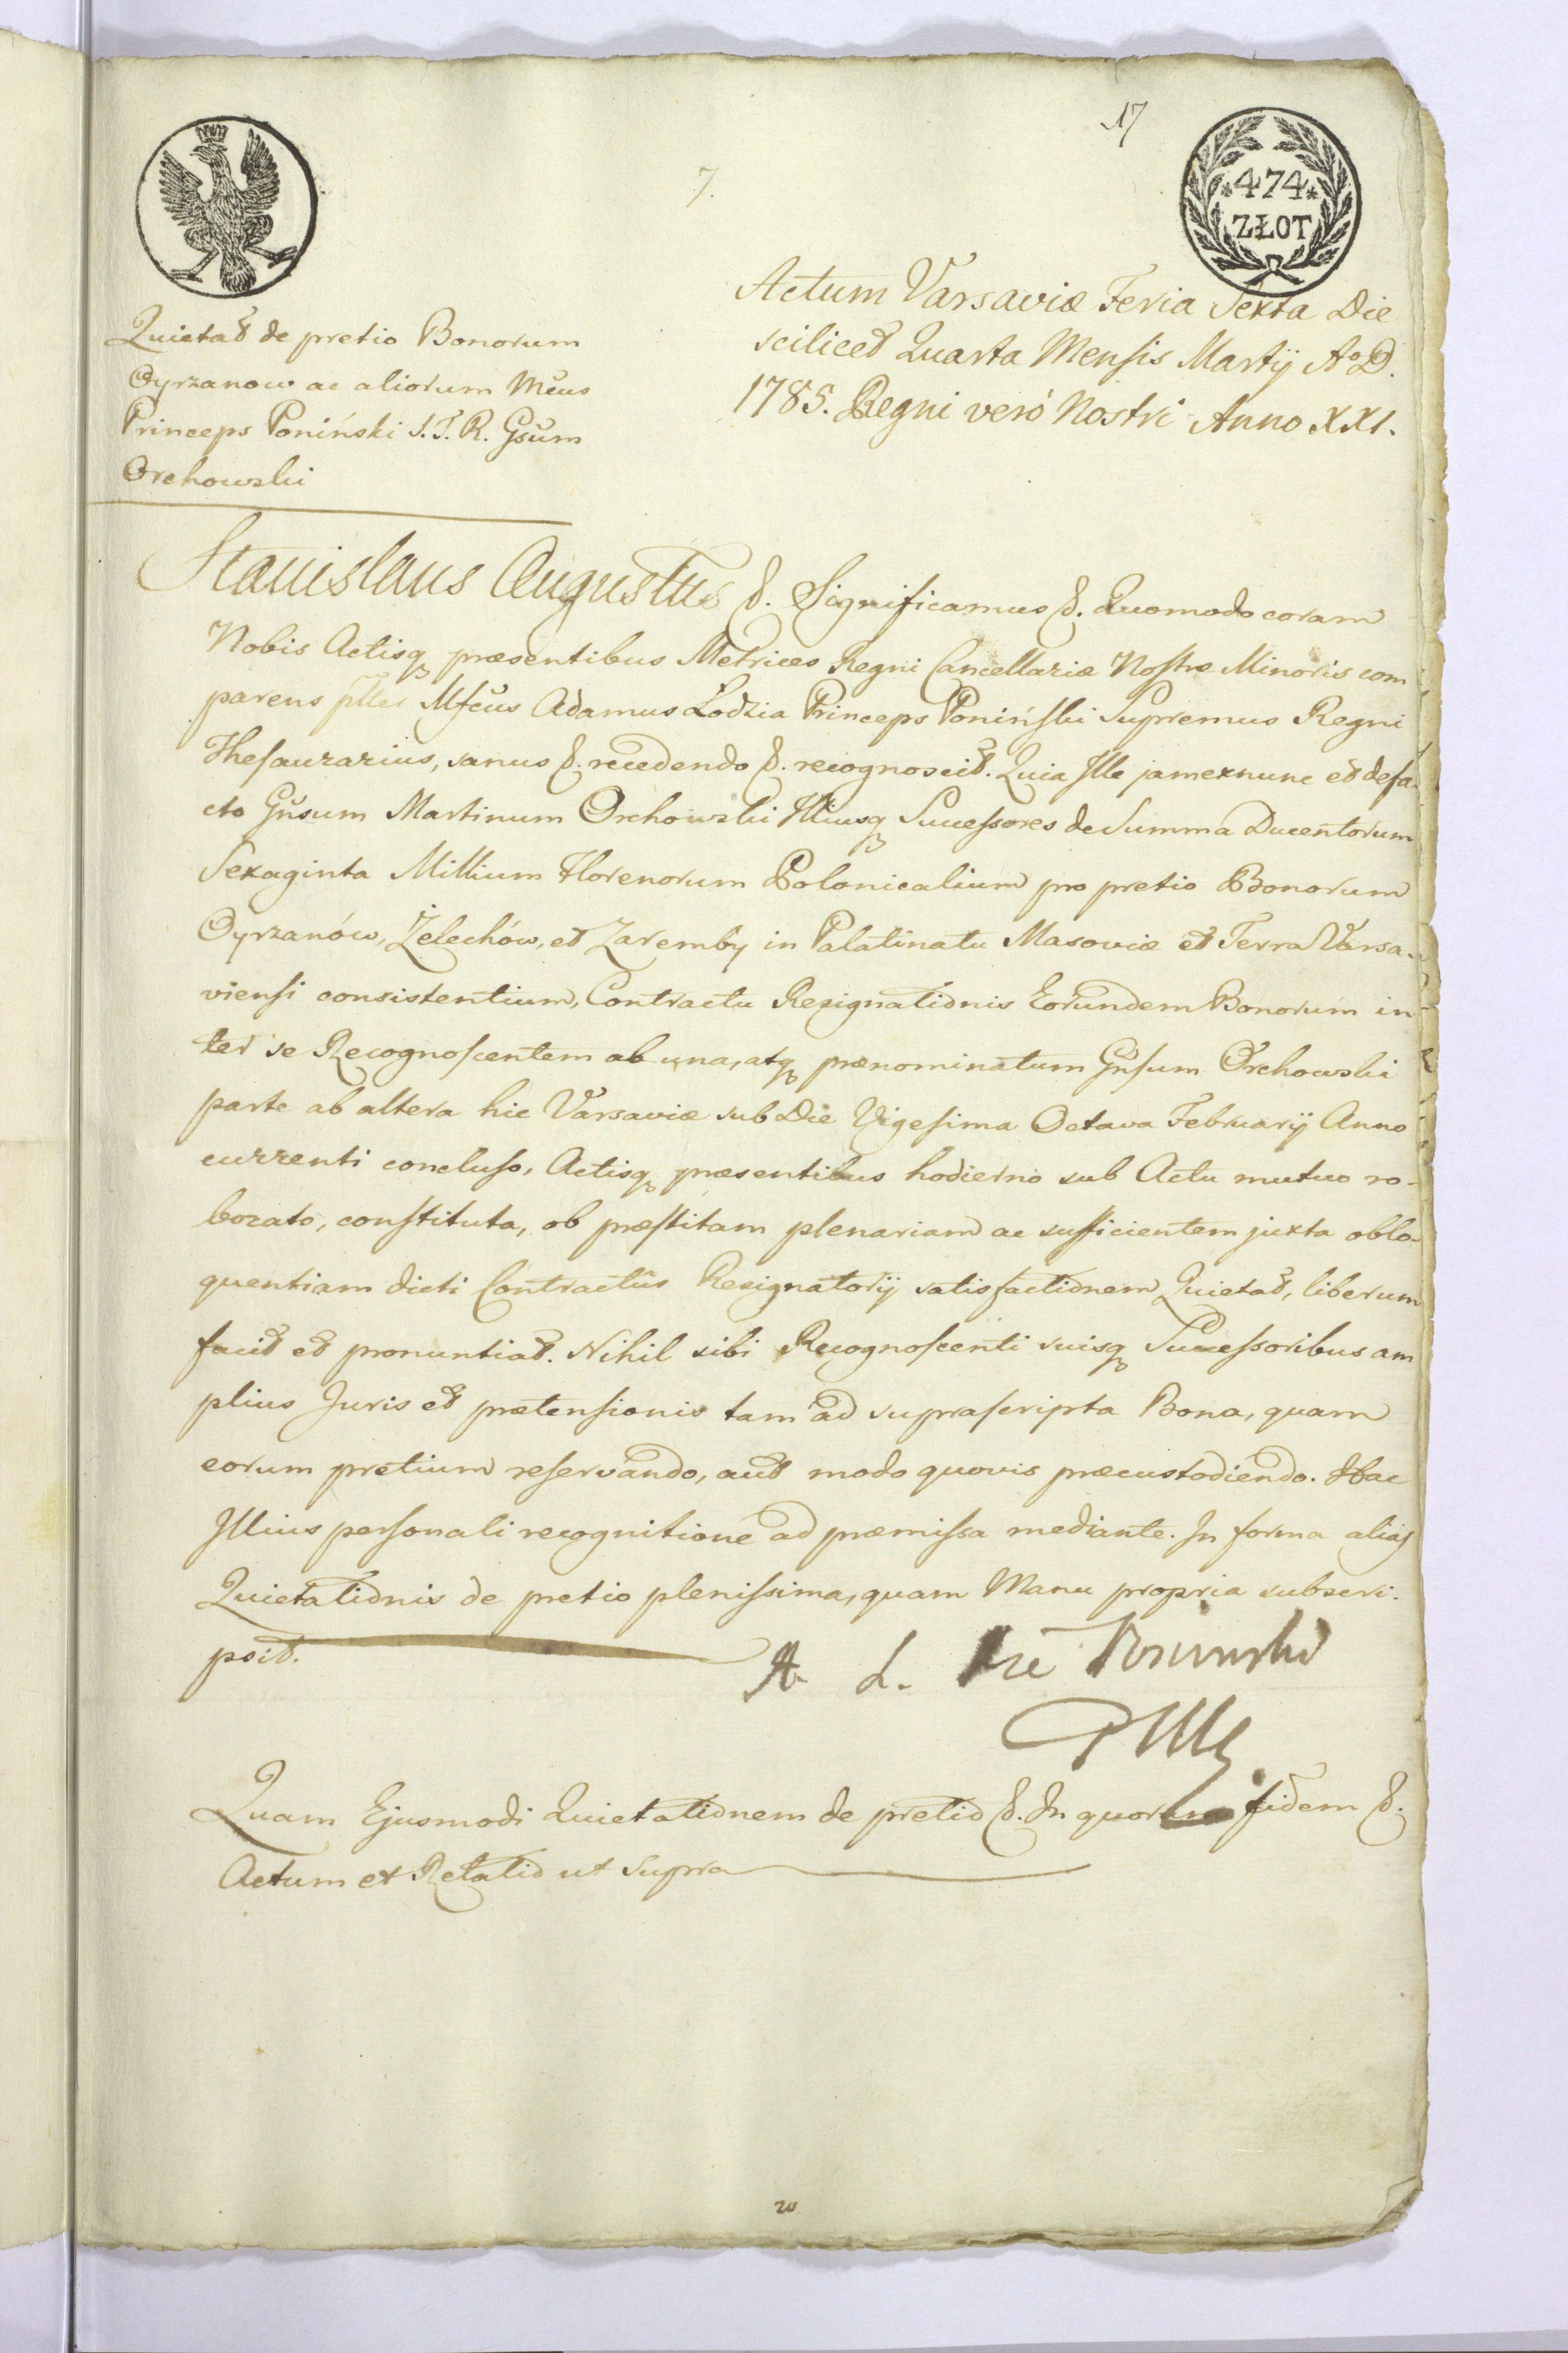 17
7.
*474*
ZŁOT
Actum Varsaviæ Feria Sexta Die
scilicet Quarta Mensis Martij Ao D.
1785. Regni veró Nostri Anno XXI.
Quietat de pretio Bonorum
Oyrzanow ac aliorum Mcus
Princeps Poniński S.T.R. Gsum
Orchowski
Stanislaus Augustus &. Significamus &. Quomodo coram
Nobis Actisq præsentibus Metrices Regni Cancellariæ Nostræ Minoris com
parens pltes Mfcus Adamus Łodzia Princeps Poniński Supremus Regni
Thesaurarius, sanus &. recedendo &. recognoscit. Quia Ille jam ex nunc et defa-
cto Gnsum Martinum Orchowski Illiusq Successores de Summa Ducentorum
Sexaginta Millium Florenorum Polonicalium pro pretio Bonorum
Oyrzanów, Żelechów, et Zaremby in Palatinatu Masoviæ et Terra Varsa-
viensi consistentium, Contractu Resignationis Eorundem Bonorum in
ter se Recognoscentem ab una, atq prænominatum Gnsum Orchowski
parte ab altera hic Varsaviæ sub Die Vigesima Octava Februarij Anno
currenti concluso, Actisq præsentibus hodierno sub Actu mutuo ro-
borato, constituta, ob præstitam plenariam ac sufficientem juxta oblo-
quentiam dicti Contractûs Resignatorij satisfactionem Quietat, liberum
facit et pronuntiat. Nihil sibi Recognoscenti suisq Successoribus am
plius Juris et prætensionis tam ad suprascripta Bona, quam
eorum pretium reservando, aut modo quovis præcustodiendo. Hac
Illius personali recognitione ad præmissa mediante. In forma alias
Quietationis de pretio plenissima, quam Manu propria subscri-
psit.
A. L. Poninski
Quam Ejusmodi Quietationem de pretio &. In quorum fidem &.
Actum et Relatio ut supra
20